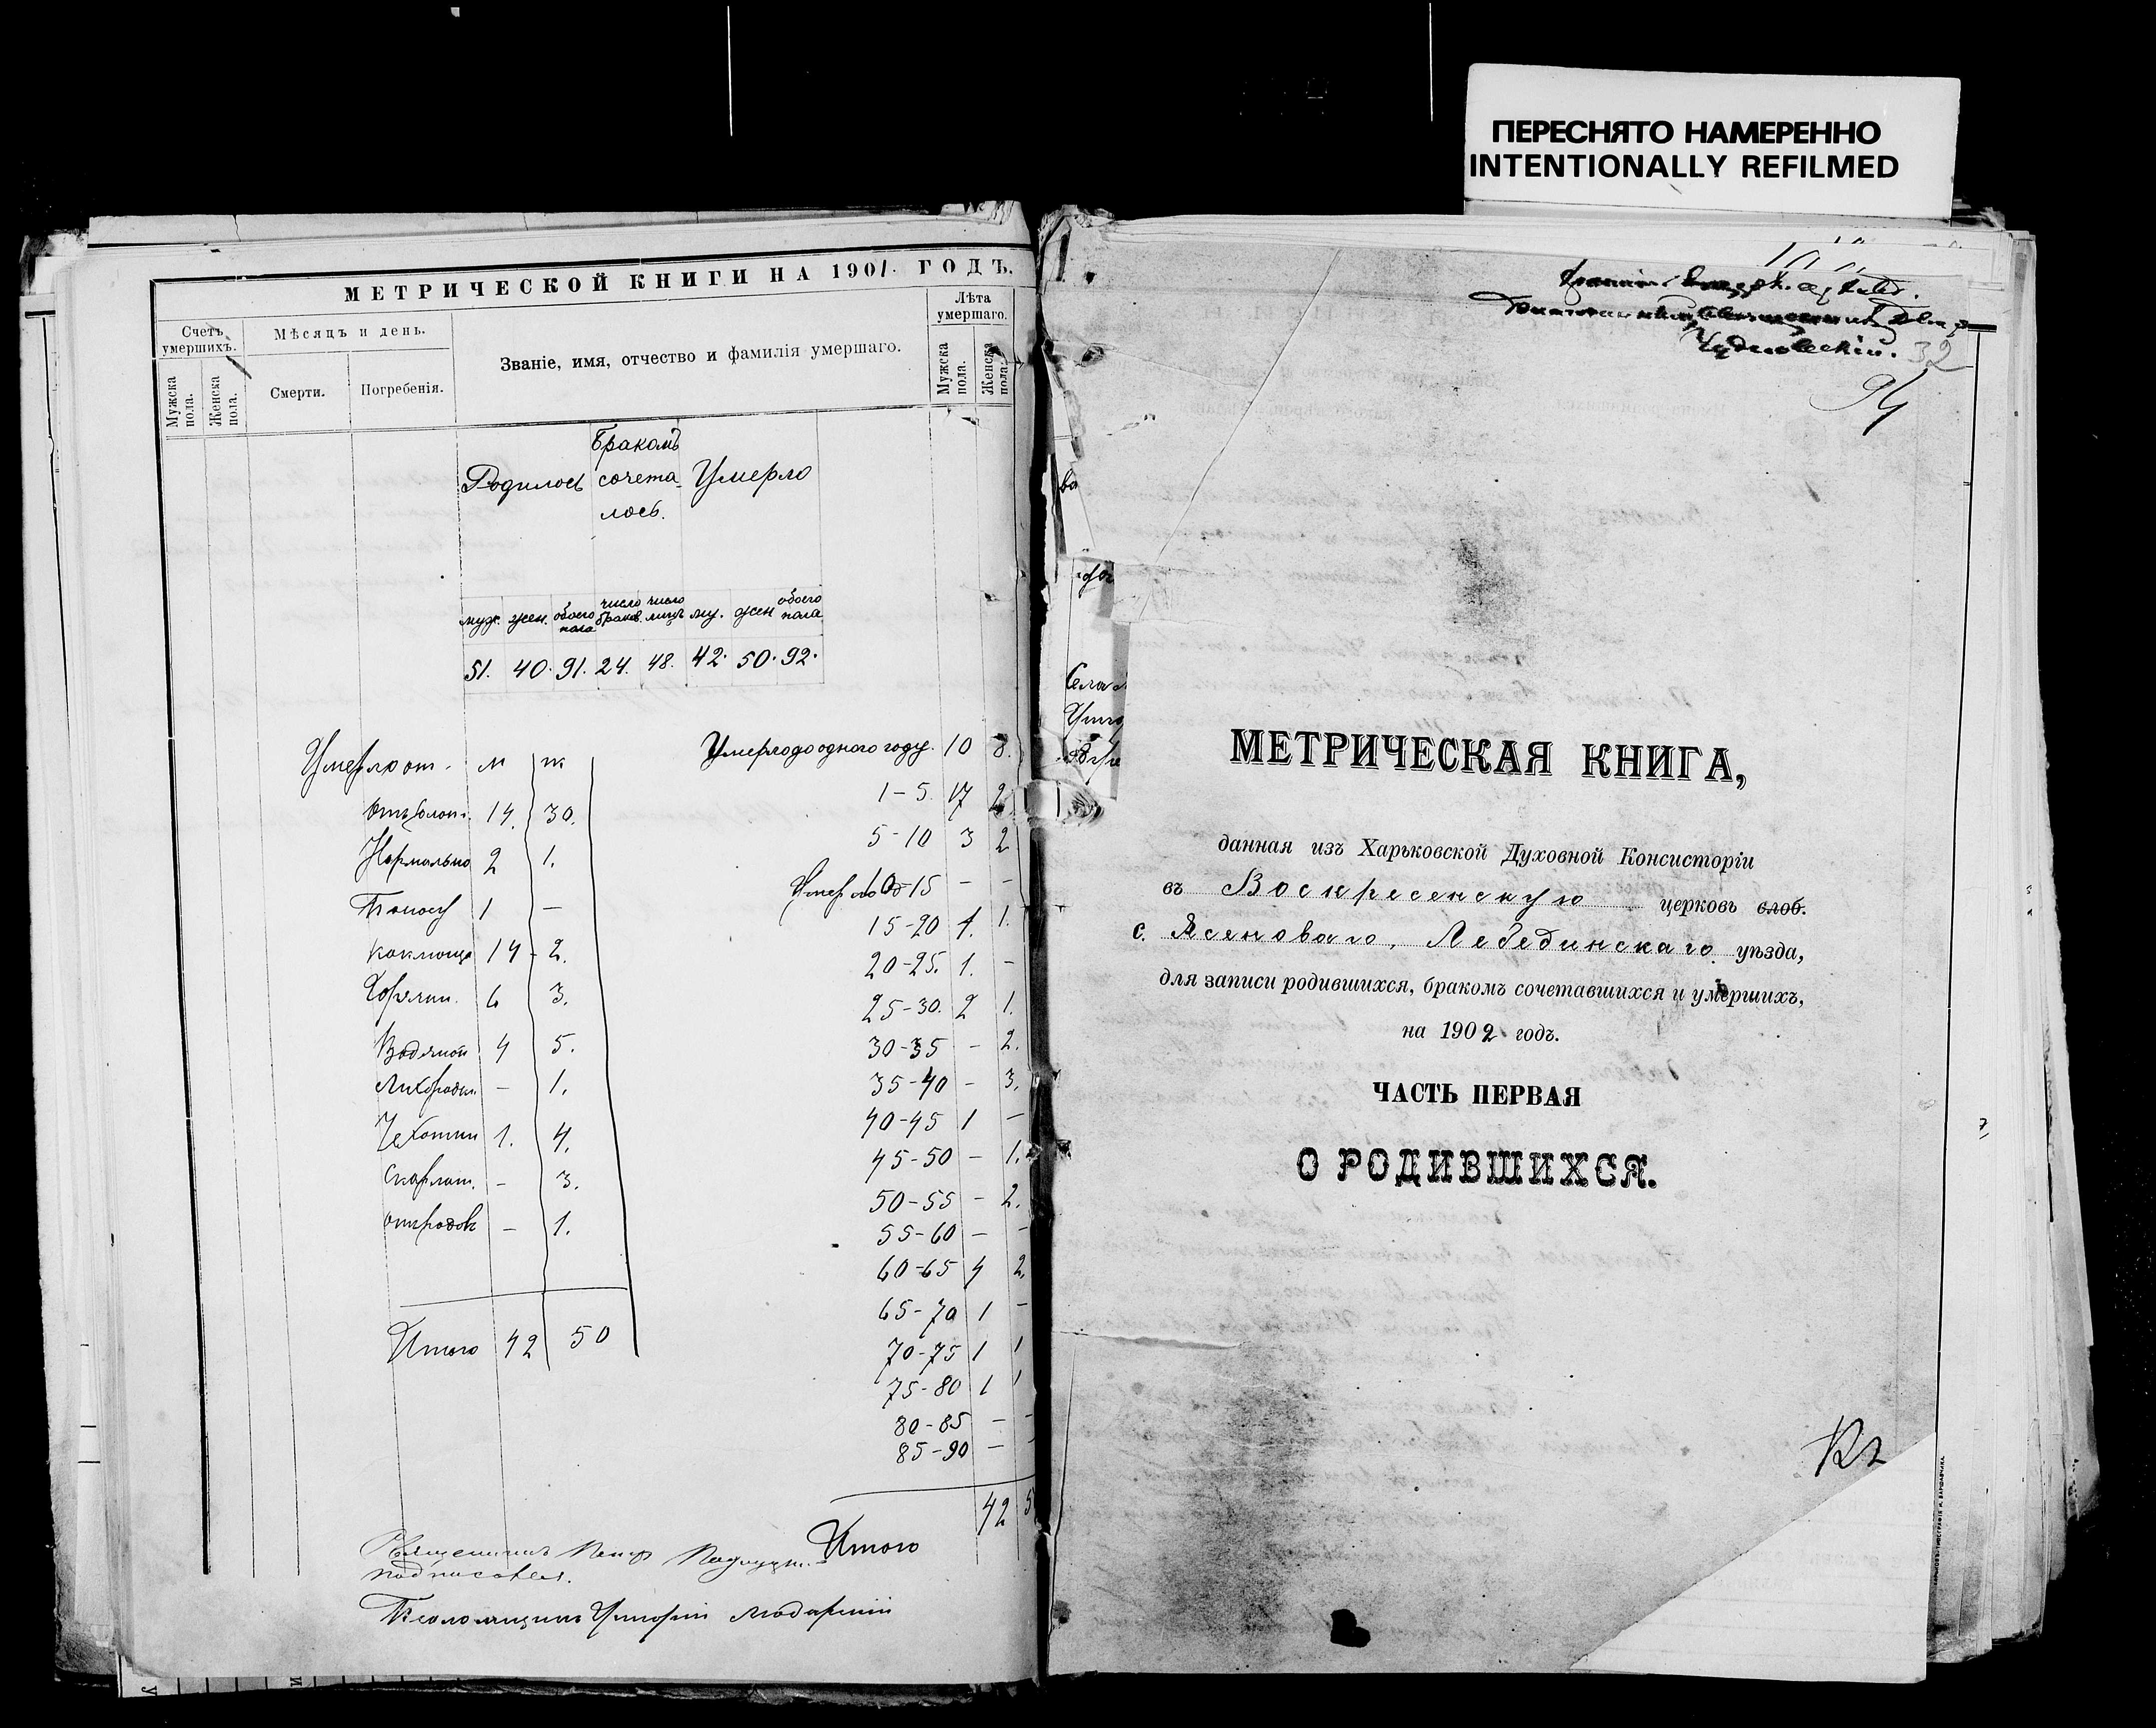 ПЕРЕСНЯТО НАМЕРЕННО
INTENTIONALLY REFILMED
МЕТРИЧЕСКОЙ КНИГИ НА 1901. ГОДЪ.
Счетъ умершихъ.
Мужска пола.
Женска пола.
Мѣсяцъ и день.
Смерти.
Погребенія.
Званіе, имя, отчество и фамилія умершаго.
Лѣта умершаго.
Мужска пола.
Женска пола.
Родилось
Бракомъ сочета-лось.
Умерло
муж. жен. обоего пола число браков. число лицъ му. жен обоего пола
51. 40. 91. 24. 48. 42. 50. 92.
Умерло от. м ж
14. 30.
Нормально 2 1.
Поносу 1 —
коклюша 14 - 2.
Горячки. 6 3.
Водяной 4 5.
Лихорадки — 1.
Чахотки 1. 4.
Скарлат. - 3.
от родов — 1.
Итого 42 50
Умерло до одного году. 10 8.
1-5. 17 2
5-10 3 2
Умерло 10-15 — —
15-20 1. 1.
20-25. 1. —
25-30. 2 1.
30-35 — 2.
35-40 — 3.
40-45 1 —
45-50 — 1.
50-55 — 2.
55-60 — —
60-65 4 2.
65-70 1 —
70-75 1 1
75-80 1 1
80-85 — —
85-90 — —
42 5
Итого
Священникъ
подписался.
Псаломщикъ
Чудновскій. 32
94
МЕТРИЧЕСКАЯ КНИГА,
данная изъ Харьковской Духовной Консисторіи
въ Воскресенскую церковь слоб.
с. Ясеноваго, Лебединскаго уѣзда,
для записи родившихся, бракомъ сочетавшихся и умершихъ,
на 1902 годъ.
ЧАСТЬ ПЕРВАЯ
О РОДИВШИХСЯ.